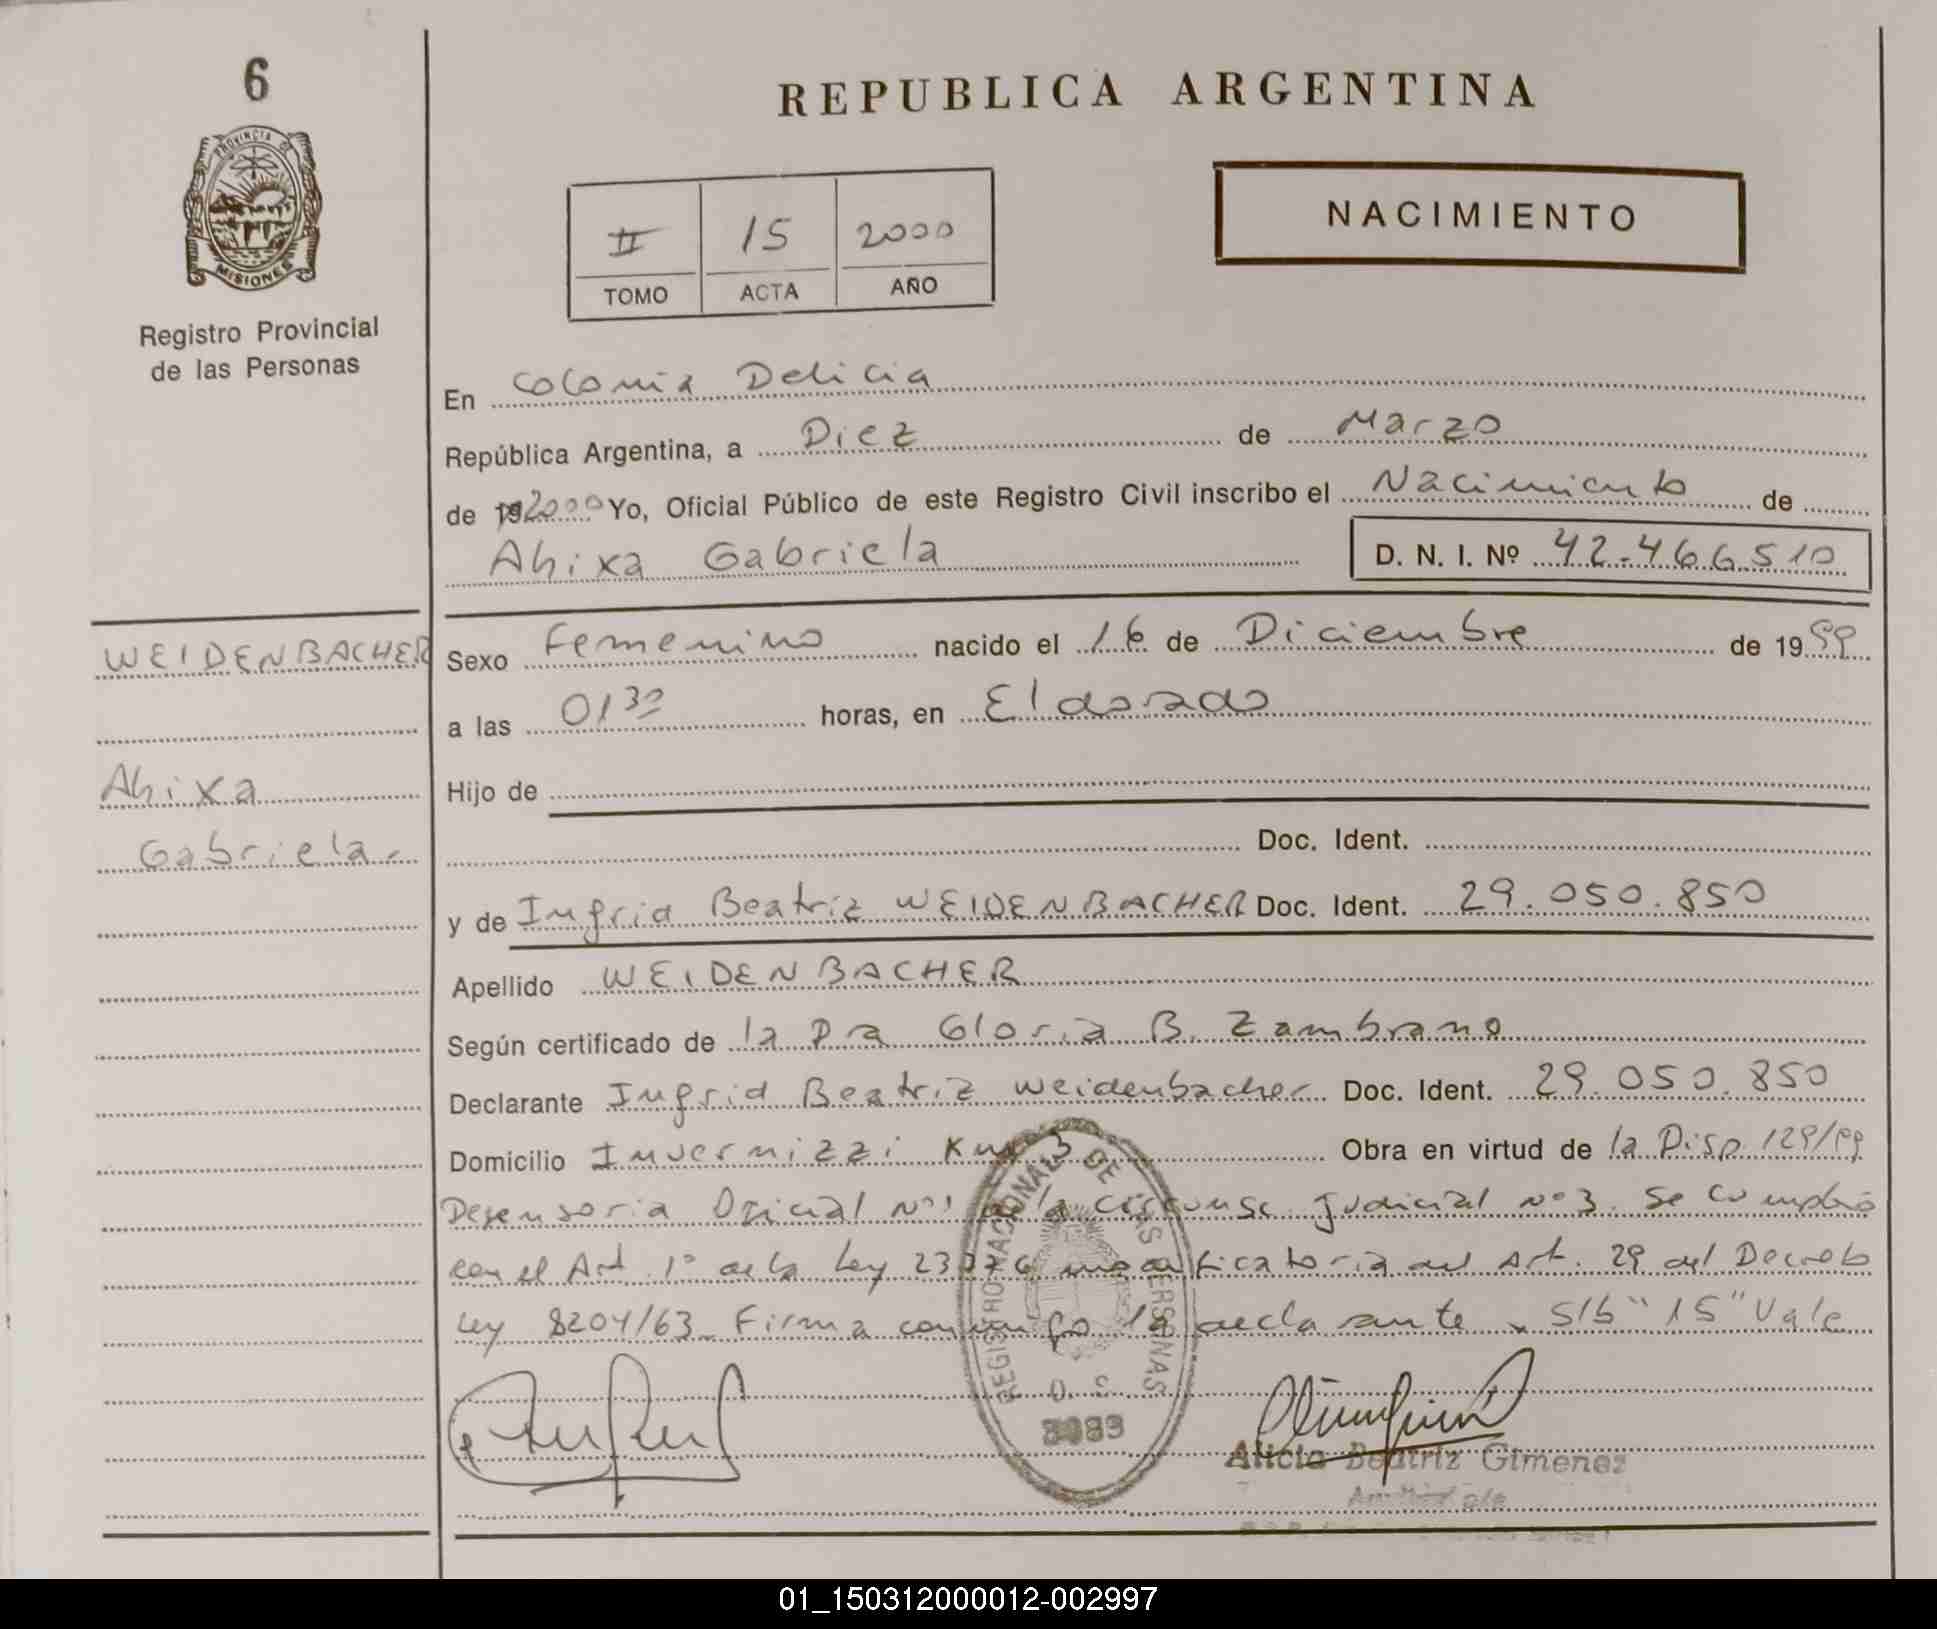 6
REPUBLICA ARGENTINA
PROVINCIA DE
MISIONES
Registro Provincial
de las Personas
II 15 2000
TOMO ACTA AÑO
NACIMIENTO
En Colonia Delicia
República Argentina, a Diez de Marzo
de 192000 Yo, Oficial Público de este Registro Civil inscribo el Nacimiento de
Ahixa Gabriela D. N. I. Nº 42.466510
WEIDENBACHER
Ahixa
Gabriela.-
Sexo Femenino nacido el 16 de Diciembre de 1999
a las 01 30 horas, en Eldorado
Hijo de
Doc. Ident.
y de Ingrid Beatriz WEIDENBACHER Doc. Ident. 29.050.850
Apellido WEIDENBACHER
Según certificado de la Dra Gloria B. Zambrano
Declarante Ingrid Beatriz Weidenbacher Doc. Ident. 29.050.850
Domicilio Invernizzi Km 3 Obra en virtud de la Disp. 129/99
Defensoria Oficial Nº1 de la Circunsc. Judicial Nº 3. Se cumplió
con el Art. 1º de la Ley 23776 modificatoria del Art. 29 del Decreto
Ley 8204/63. Firma conmigo la declarante - S/b "15" Vale
REGISTRO NACIONAL DE LAS PERSONAS
O. S
3083
Alicia Beatriz Gimenez
01_150312000012-002997